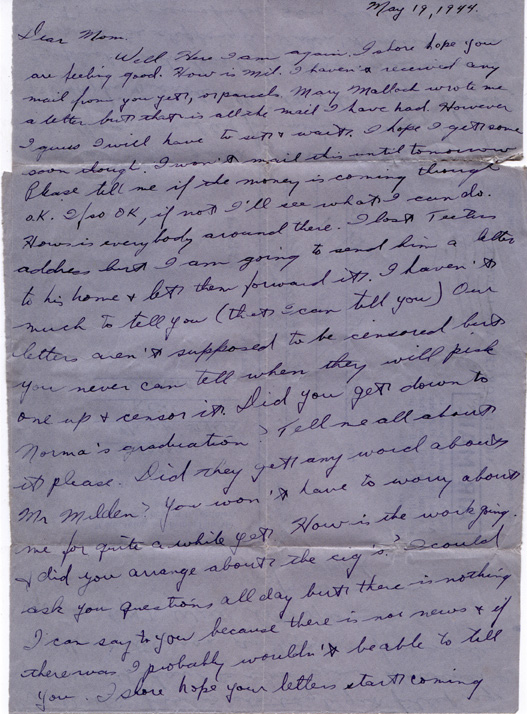 May 19, 1944.
Dear Mom.
Well Here I am again. I shore hope you
are feeling good. How is Mil. I haven't received any
mail from you yet, or parcels. Mary Malloch wrote me
a letter but that is all the mail I have had. However
I guess I will have to set & wait. I hope I get some
soon though. I won't mail this until tomorrow
Please tell me if the money is coming though
o.K. If so OK, if not I'll see what I can do.
Hows is everybody around there. I lost Teeters
address but I am going to send him a letter
to his home & let them forward it. I haven't
much to tell you (that I can tell you) Our
letters aren't supposed to be censored but
you never can tell when they will pick
one up & censor it. Did you get down to
Norma's graduation? Tell me all about
it please. Did they get any word about
Mr Milden? You won't have to worry about
me for quite a while yet. How is the work going.
& did you arrange about the cig's.? I could
ask you questions all day but there is nothing
I can say to you because there is not news & if
there was I probably wouldn't be able to tell
you. I shore hope your letters start coming